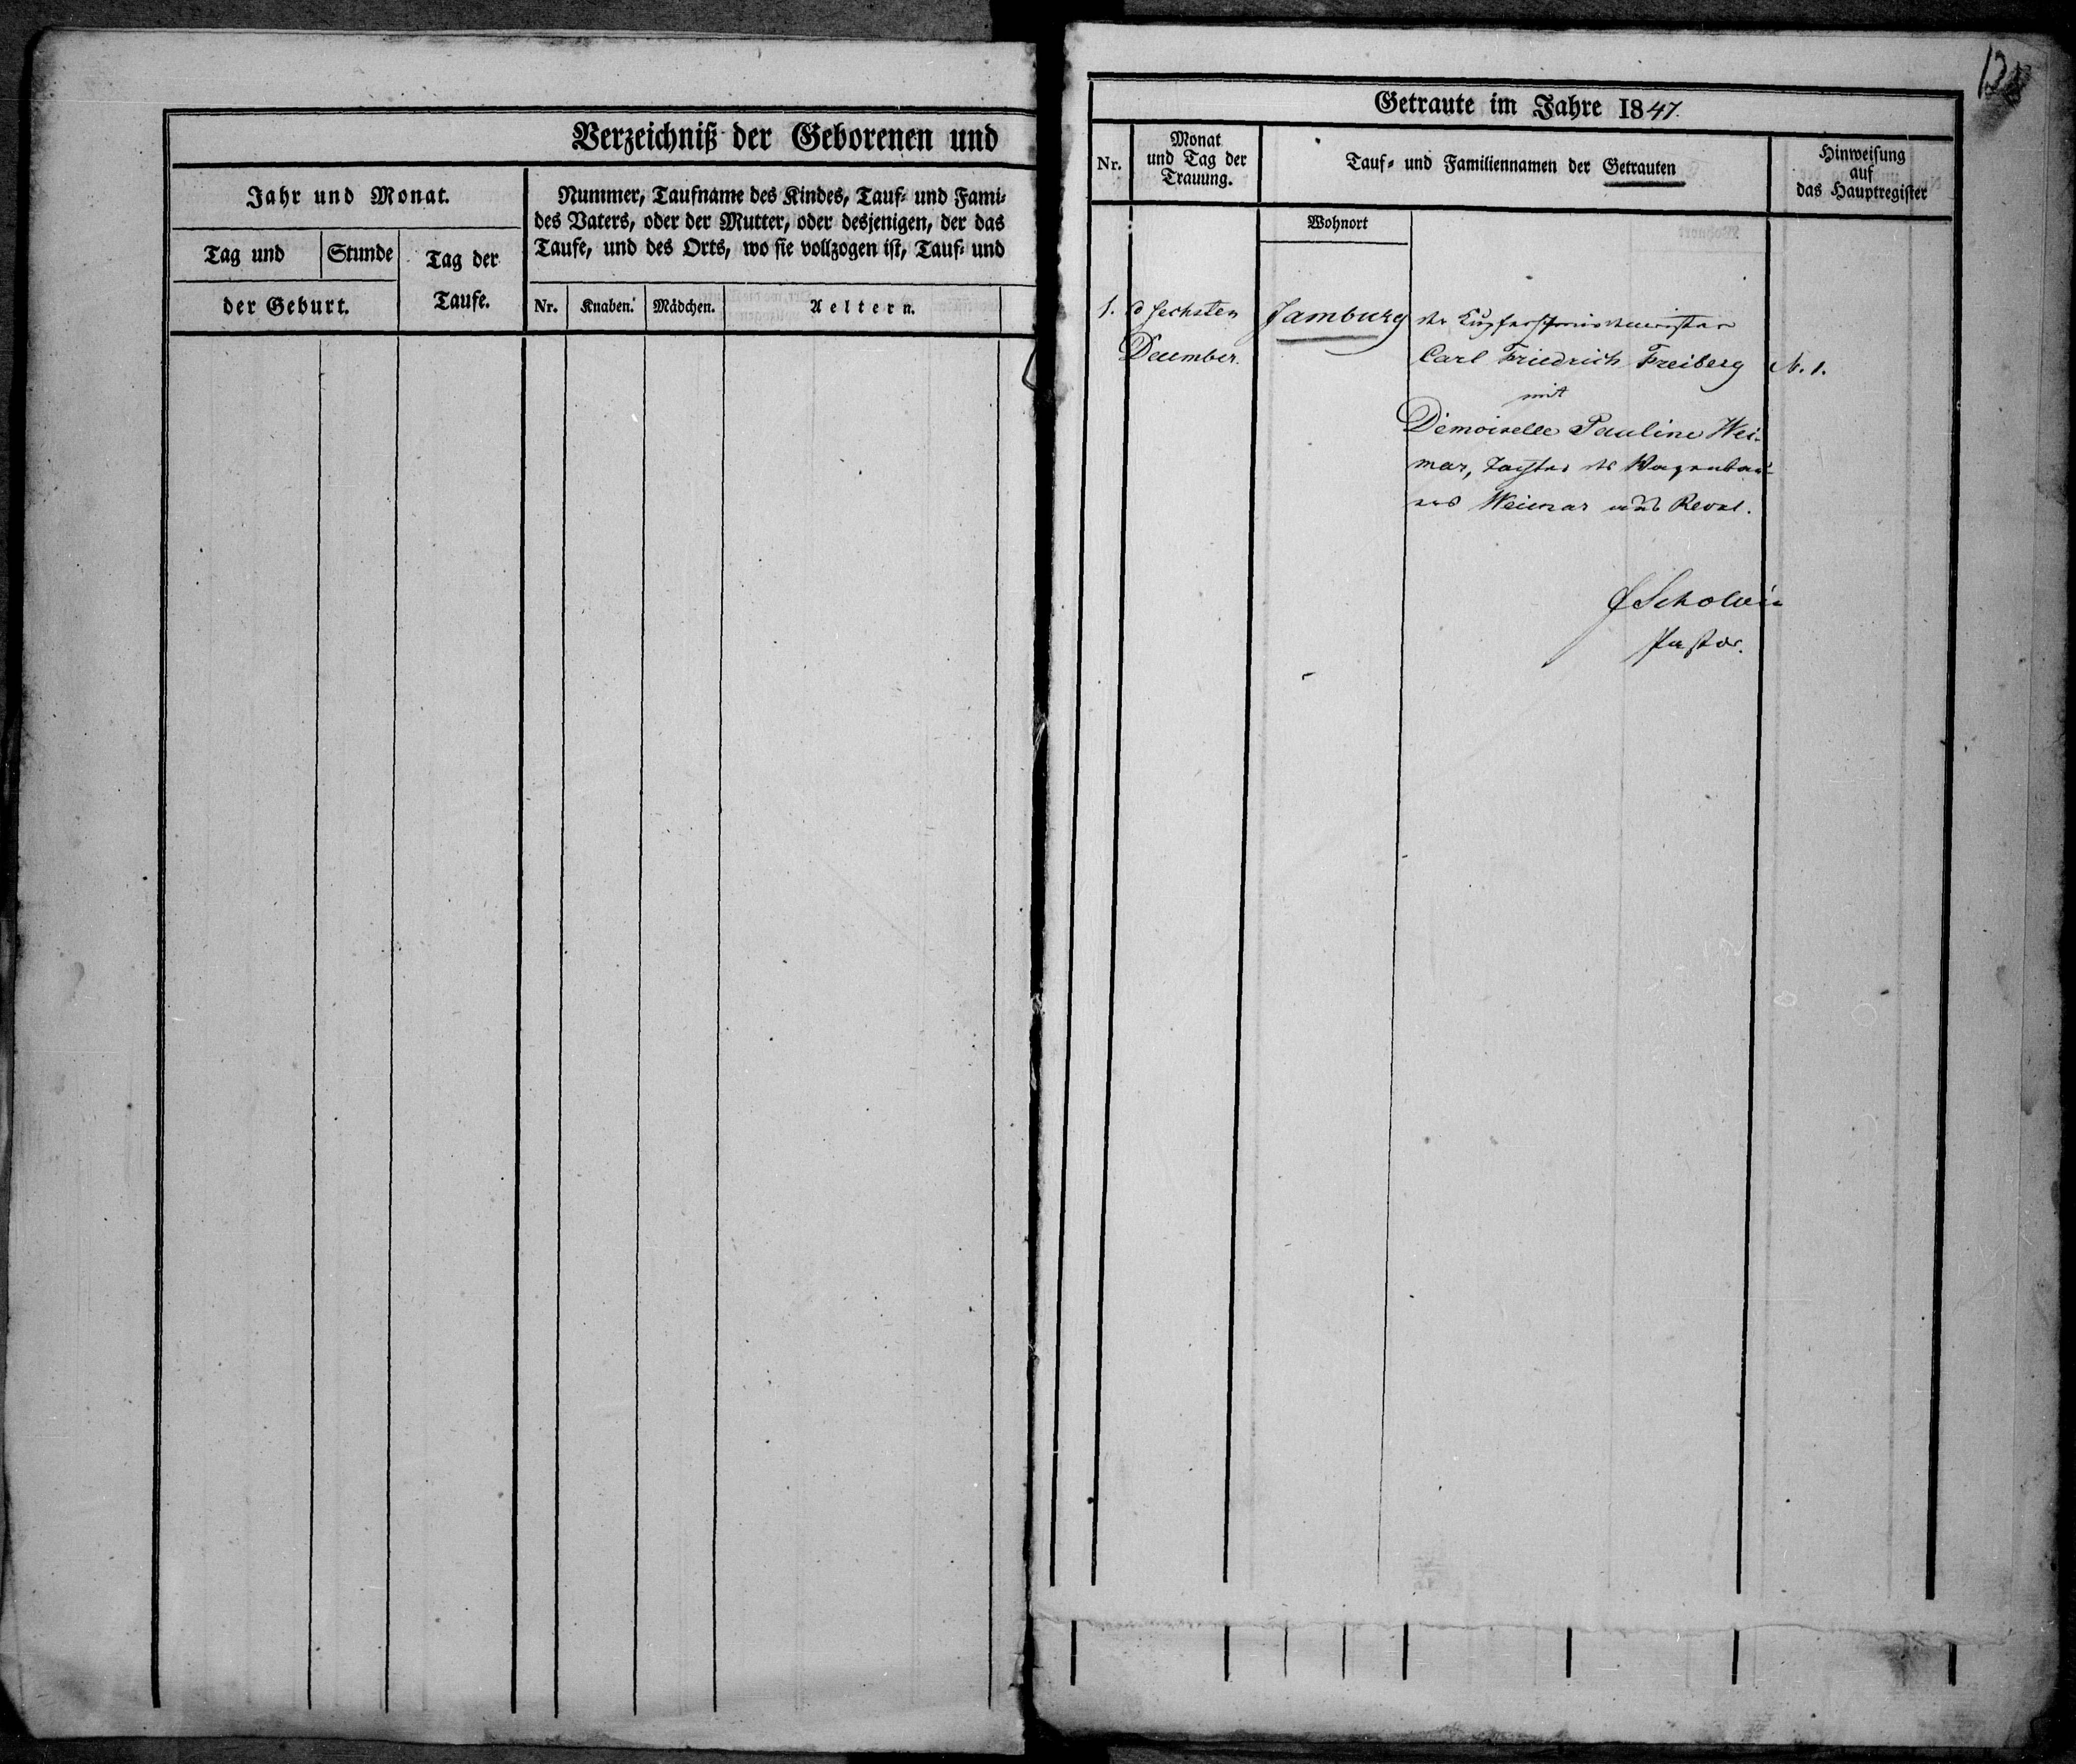 Verzeichniß der Geborenen und
Jahr und Monat.
Tag und
Stunde
der Geburt.
Tag der
Taufe.
Nummer, Taufname des Kindes, Tauf- und Fami-
des Vaters, oder der Mutter, oder desjenigen, der das
Taufe, und des Orts, wo sie vollzogen ist, Tauf- und
Nr.
Knaben.
Mädchen.
Aeltern.
Getraute im Jahre 1847.
Nr.
Monat
und Tag der
Trauung.
Tauf- und Familiennamen der Getrauten
Hinweisung
auf
das Hauptregister
Wohnort
1.
d sechsten
December.
Jamburg
der Kupferschmiedemeister
Carl Friedrich Freiberg
N. 1.
mit
Demoiselle Pauline Wei-
mar, Tochter des Wagenbau-
ers Weimar aus Reval.
Scholvin
Pastor.